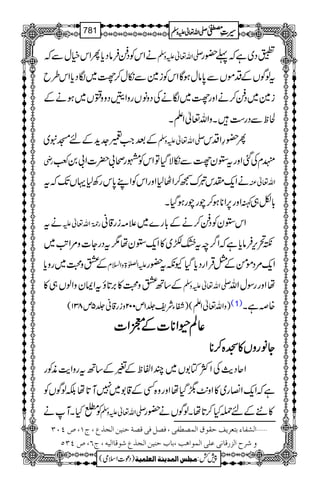 سیرتِ مصطفیٰ صلی اللہ تعالیٰ علیہ وسلم 781
تطبیق دی ہے کہ پہلے حضور صلی اللہ تعالیٰ علیہ وسلم نے اس کو دفن فرما دیا پھر اس خیال سے کہ
یہ لوگوں کے قدموں سے پامال ہوگا اس کو زمین سے نکال کر چھت میں لگا دیا اس طرح
زمین میں دفن کرنے اور چھت میں لگانے کی دونوں روایتیں دو وقتوں میں ہونے کے
لحاظ سے درست ہیں۔ واللہ تعالیٰ اعلم۔
پھر حضور اقدس صلی اللہ تعالیٰ علیہ وسلم کے بعد جب تعمیر جدید کے لئے مسجد نبوی
منہدم کی گئی اور یہ ستون چھت سے نکالا گیا تو اس کو مشہور صحابی حضرت ابی بن کعب رضی
اللہ تعالیٰ عنہ نے ایک مقدس تبرک سمجھ کر اٹھا لیا اور اس کو اپنے پاس رکھ لیا یہاں تک کہ یہ
بالکل ہی کہنہ اور پرانا ہو کر چور چور ہو گیا۔
اس ستون کو دفن کرنے کے بارے میں علامہ زرقانی رحمۃ اللہ تعالیٰ علیہ نے یہ
نکتہ تحریر فرمایا ہے کہ اگرچہ یہ خشک لکڑی کا ایک ستون تھا مگر یہ درجات و مراتب میں
ایک مردِ مؤمن کے مثل قرار دیا گیا کیونکہ یہ حضور علیہ الصلوٰۃ والسلام کے عشق و محبت میں رویا
تھا اور رسول اللہ صلی اللہ تعالیٰ علیہ وسلم کے ساتھ عشق و محبت کا یہ برتاؤ یہ ایمان والوں ہی کا
خاصہ ہے۔ (1) (واللہ تعالیٰ اعلم) (شفاء شریف جلد ا ص ۲۰۰ و زرقانی جلد ۵ ص ۱۳۸)
عالم حیوانات کے معجزات
جانوروں کا سجدہ کرنا
احادیث کی اکثر کتابوں میں چند الفاظ کے تغیر کے ساتھ یہ روایت مذکور
ہے کہ ایک انصاری کا اونٹ بگڑ گیا تھا اور وہ کسی کے قابو میں نہیں آتا تھا بلکہ لوگوں کو
کاٹنے کے لئے حملہ کیا کرتا تھا۔ لوگوں نے حضور صلی اللہ تعالیٰ علیہ وسلم کو مطلع کیا۔ آپ نے
1......الشفاء بتعريف حقوق المصطفى، فصل فى قصة حنين الجذع، ج۱، ص ۳۰۴
و شرح الزرقانی علی المواهب، باب حنين الجذع شوقاًاليه، ج۶، ص ۵۳۴
پیش کش: مجلس المدینۃ العلمیۃ (دعوتِ اسلامی)